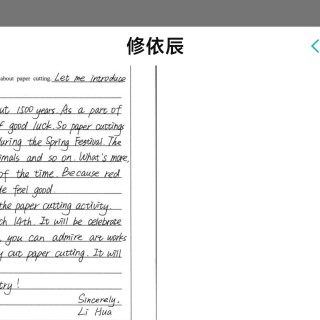 修依辰
about paper cutting. Let me introduce
ut 1500 years. As a part of
f good luck. So paper cuttings
during the Spring Festival. The
imals and so on. What's more,
of the time. Because red
le feel good.
the paper cutting activity.
th 14th. It will be celebrate
, you can admire art works
y cut paper cutting. It will
try!
Sincerely,
Li Hua